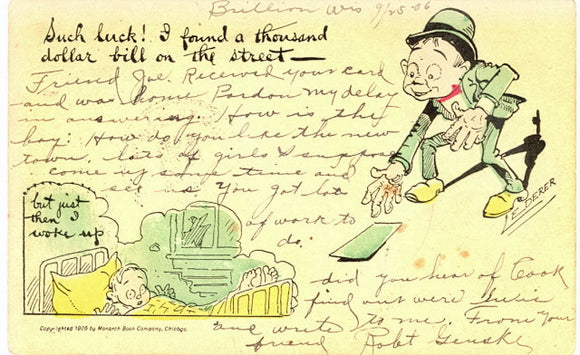 Brillion Wis 9/25-06
Such luck! I found a thousand
dollar bill on the street—
Friend Joe. Received your card
and was home Pardon my delay
in answering. How is the
boy. How do you like the new
town, lots of girls I suppose
come up some time and
see us You got lot
of work to
do.
E. DERER
but just
then I
woke up
did you hear of Cook
find out were
and write to me. From your
friend Robt
Copyrighted 1905 by Monarch Book Company, Chicago.